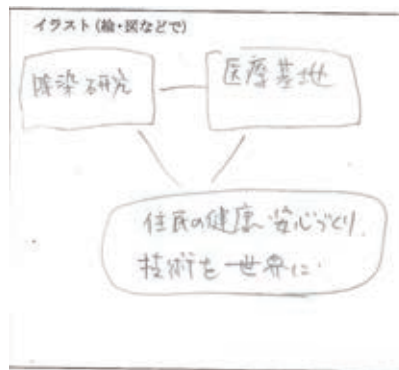 イラスト(絵・図などで)
除染研究
医療基地
住民の健康、安心づくり.
技術を世界に.